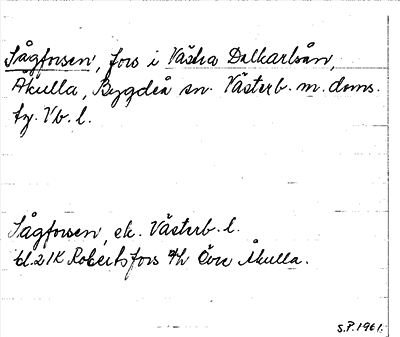 Sågforsen, fors i Västra Dalkarlsån,
Åkulla, Bygdeå sn. Västerb. m. doms.
fg. Vb. l.
Sågforsen, ek. Västerb. l.
bl. 21K Robertsfors Övre Åkulla.
S.P. 1961.